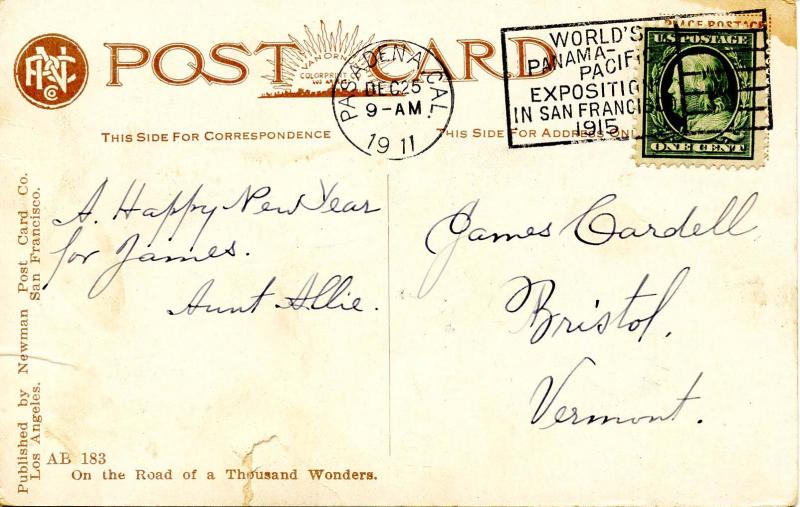 POST CARD
VAN ORNUM
COLORPRINT CO
PASADENA, CAL.
DEC 25
9-AM
1911
WORLD'S
PANAMA-
PACIFIC
EXPOSITION
IN SAN FRANCISCO
1915
PLACE POSTAGE
U.S. POSTAGE
ONE CENT
THIS SIDE FOR CORRESPONDENCE
THIS SIDE FOR ADDRESS ONLY
A. Happy New Year
for James.
Aunt Allie.
James Cardell
Bristol,
Vermont.
Published by Newman Post Card Co.
Los Angeles. San Francisco.
AB 183
On the Road of a Thousand Wonders.